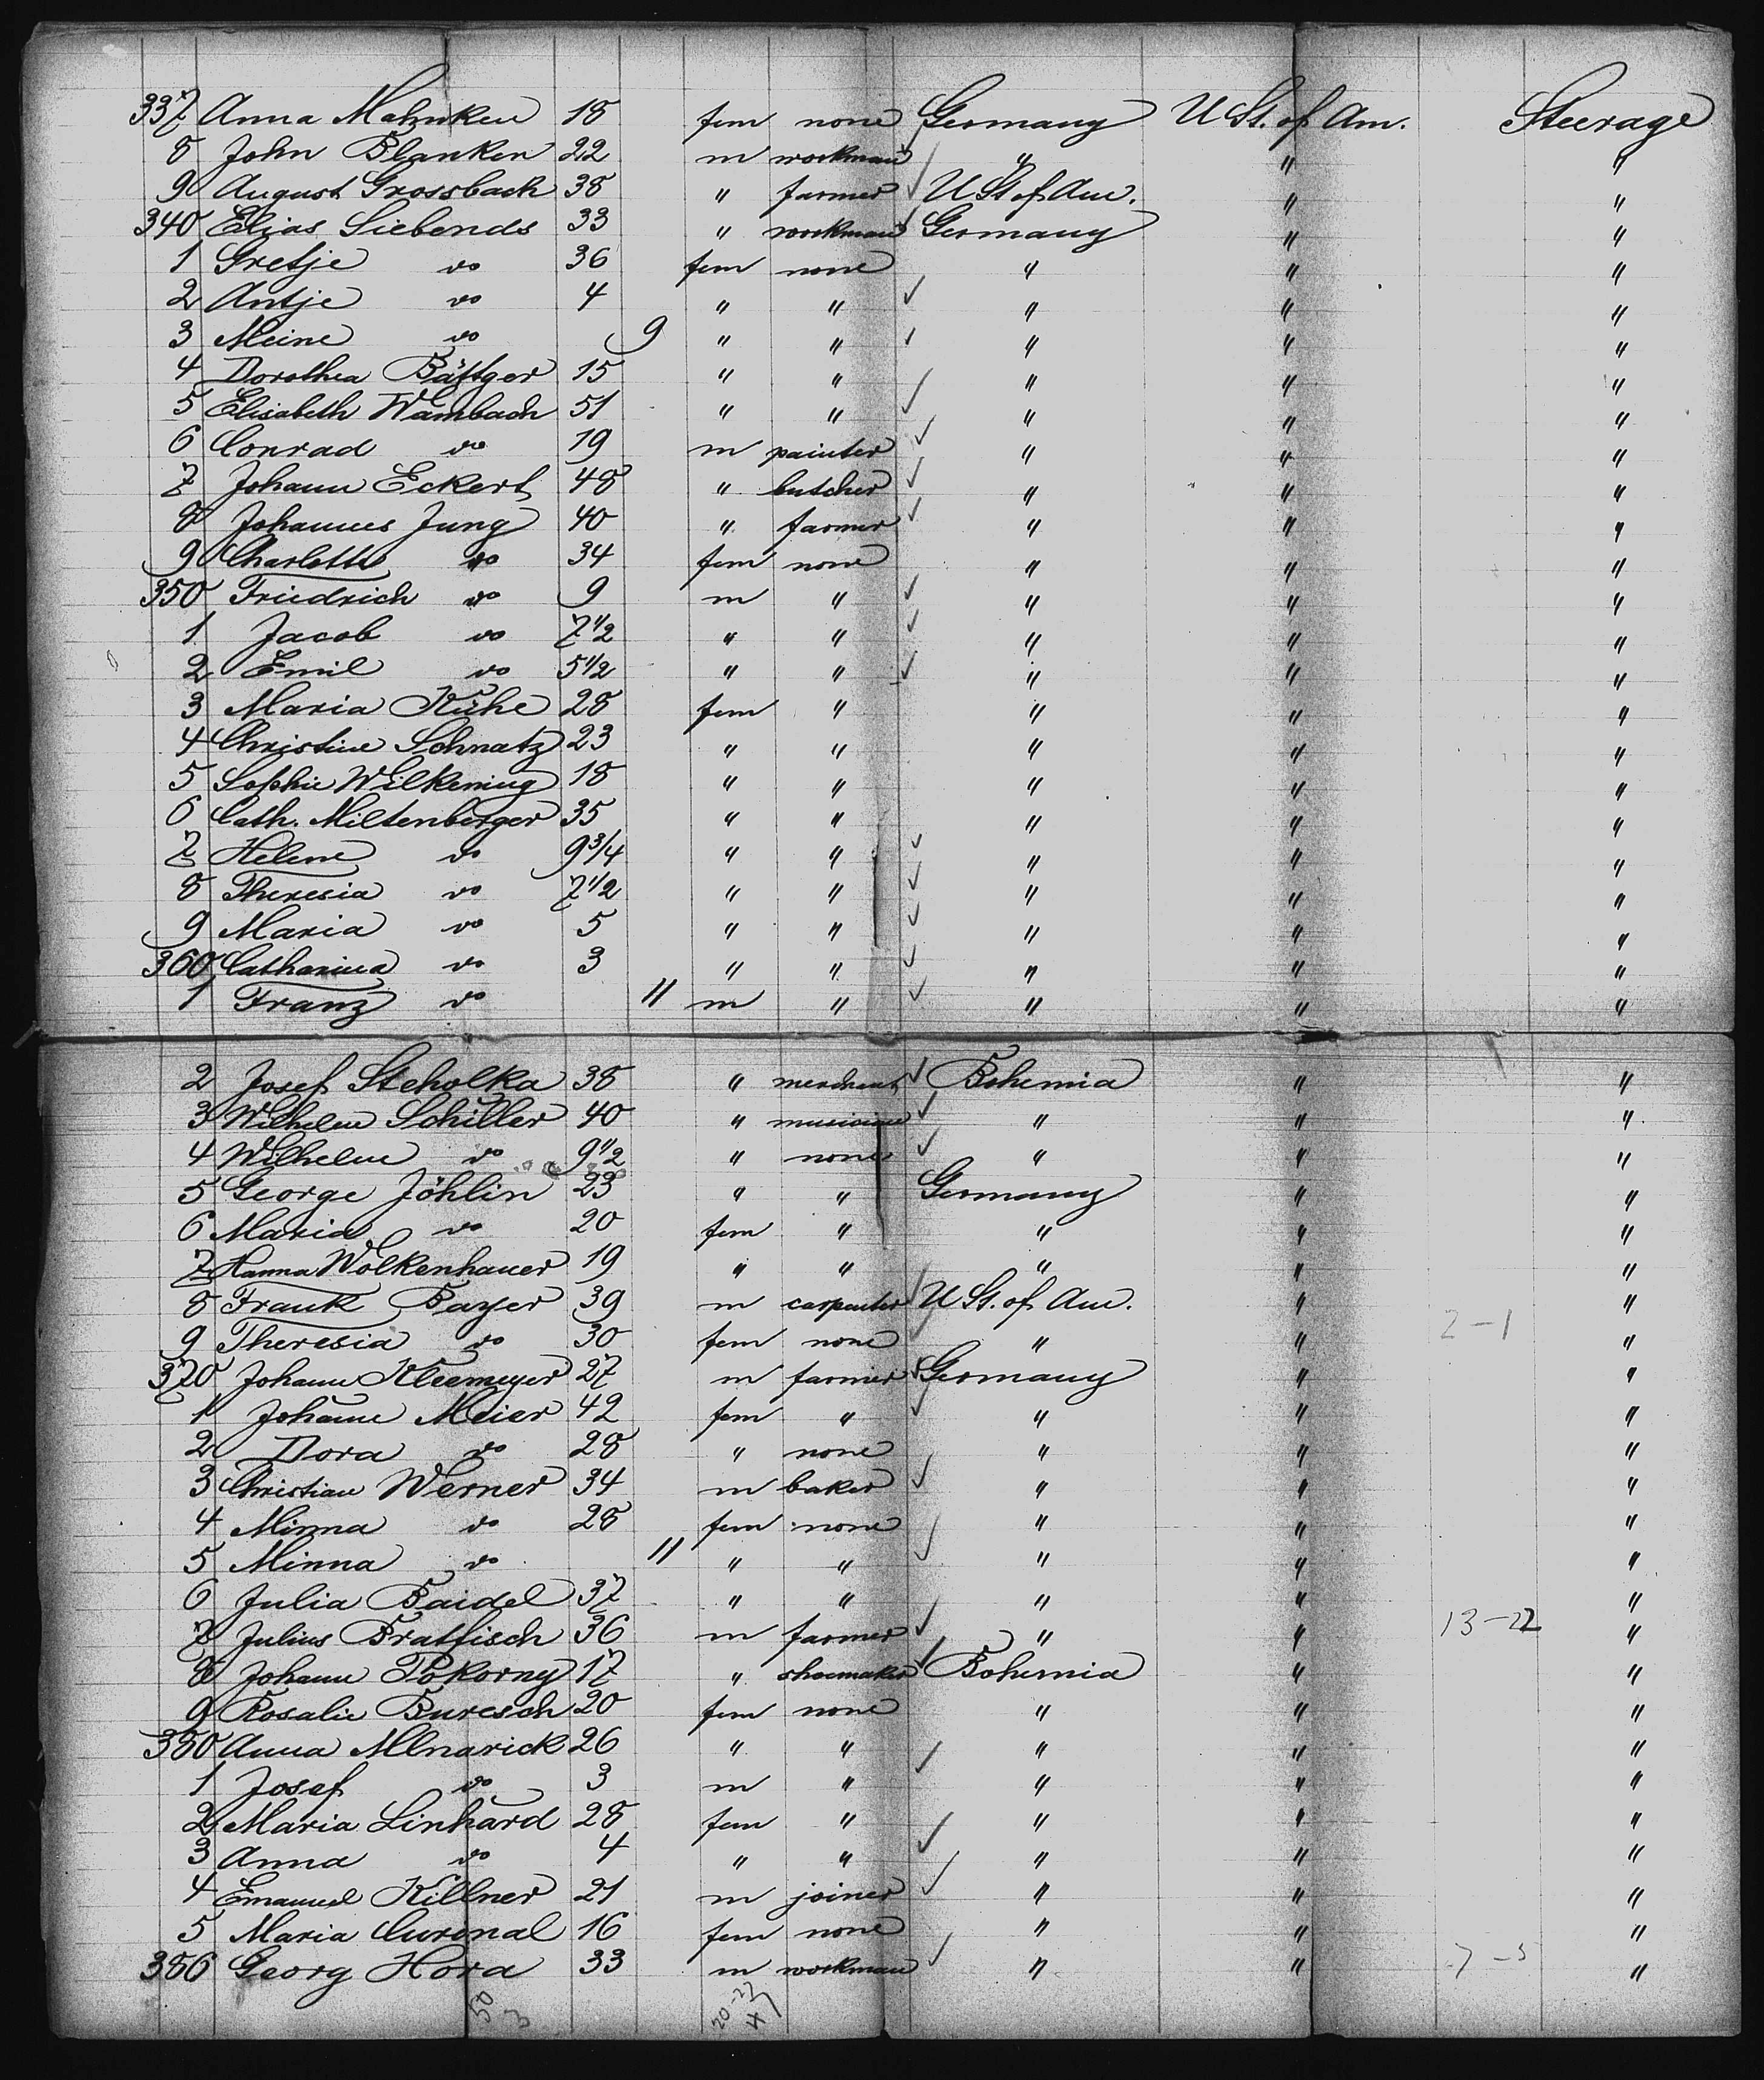 337 Anna Mahnken 18 fem none Germany U St. of Am. Steerage
8 John Blanken 22 m workman " " "
9 August Grossbach 38 " farmer U St of Am. " "
340 Elias Siebends 33 " workman Germany " "
1 Gretje do 36 fem none " " "
2 Antje do 4 " " " " "
3 Meine do 9 " " " " "
4 Dorothea Bättger 15 " " " " "
5 Elisabeth Wambach 51 " " " " "
6 Conrad do 19 m painter " " "
7 Johann Eckert 48 " butcher " " "
8 Johannes Jung 40 " farmer " " "
9 Charlotte do 34 fem none " " "
350 Friedrich do 9 m " " " "
1 Jacob do 7 1/2 " " " " "
2 Emil do 5 1/2 " " " " "
3 Maria Kühe 28 fem " " " "
4 Christine Schnatz 23 " " " " "
5 Sophie Wilkening 18 " " " " "
6 Cath. Miltenberger 35 " " " " "
7 Helene do 9 3/4 " " " " "
8 Theresia do 7 1/2 " " " " "
9 Maria do 5 " " " " "
360 Catharina do 3 " " " " "
1 Franz do 11 m " " " "
2 Josef Steholka 38 " merchant Bohemia " "
3 Wilhelm Schiller 40 " musician " " "
4 Wilhelm do 9 1/2 " none " " "
5 George Jöhlin 23 " " Germany " "
6 Maria do 20 fem " " " "
7 Hanna Wolkenhauer 19 " " " " "
8 Frank Bayer 39 m carpenter U St. of Am. " "
9 Theresia do 30 fem none " " 2-1 "
370 Johann Kleemeyer 27 m farmer Germany " "
1 Johanne Meier 42 fem " " " "
2 Dora do 28 " none " " "
3 Christian Werner 34 m baker " " "
4 Minna do 28 fem none " " "
5 Minna do 11 " " " " "
6 Julia Baidel 37 " " " " "
7 Julius Bratfisch 36 m farmer " " 13-22 "
8 Johann Pokorny 17 " shoemaker Bohemia " "
9 Rosalie Buresch 20 fem none " " "
380 Anna Mlnarick 26 " " " " "
1 Josef do 3 m " " " "
2 Maria Linhard 28 fem " " " "
3 Anna do 4 " " " " "
4 Emanuel Killner 21 m joiner " " "
5 Maria Curinal 16 fem none " " "
386 Georg Hora 33 m workman " " 7-5 "
50
3
20-27
47